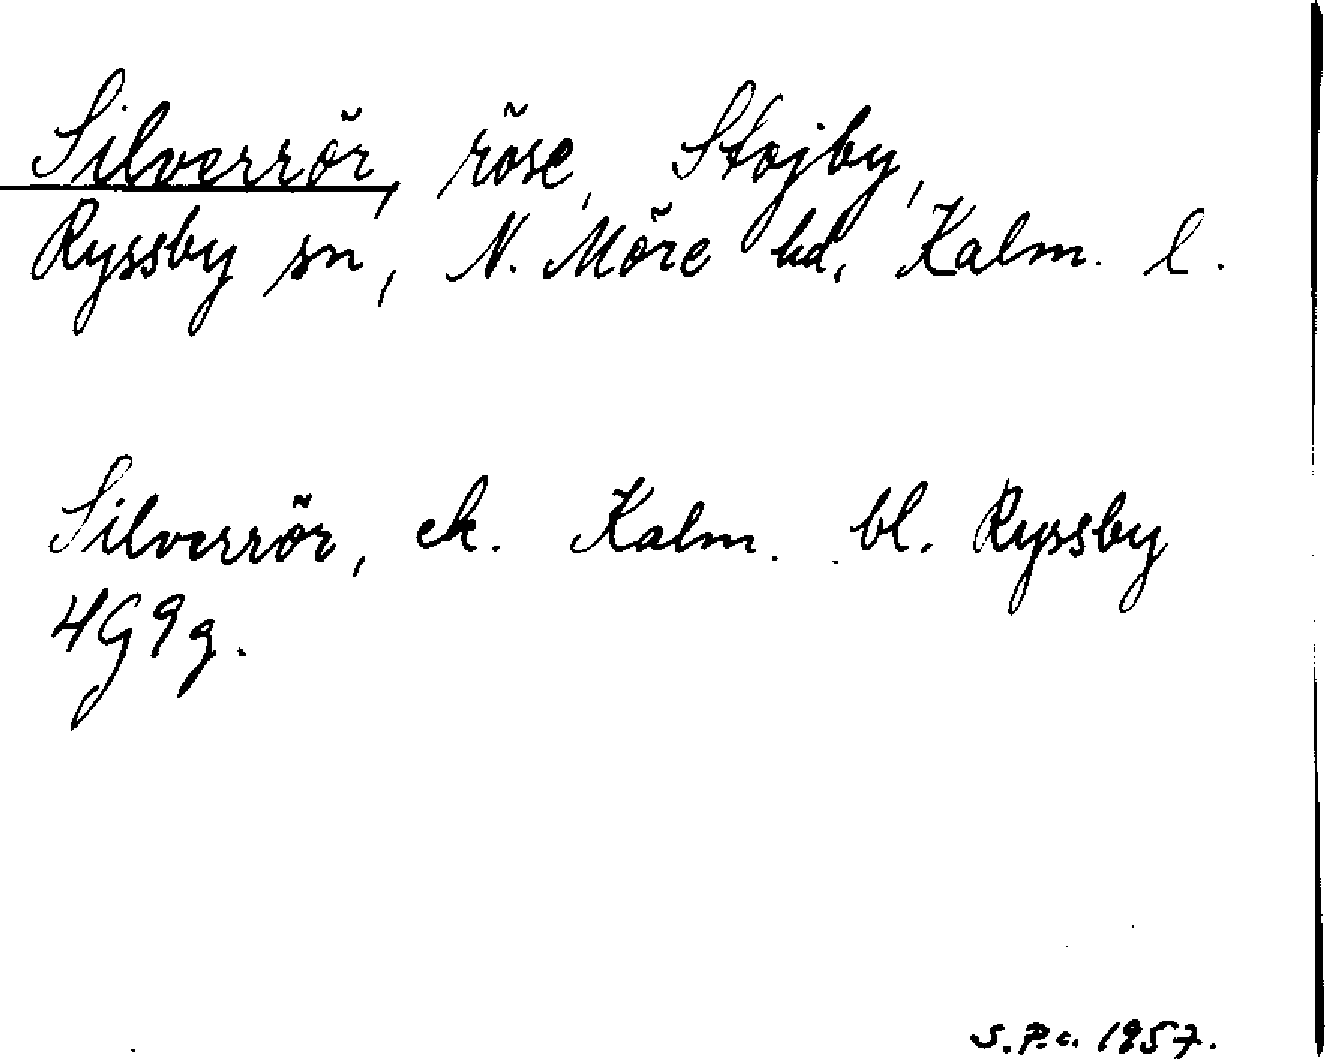 Silverrör, röse, Stojby,
Ryssby sn, N. Möre hd, Kalm. l.
Silverrör, ek. Kalm. bl. Ryssby
4G9g.
S.P.c. 1957.